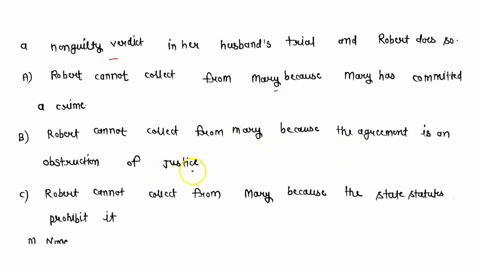 a nonguilty verdict in her husband's trial and Robert does so.
A) Robert cannot collect from Mary because Mary has committed
a crime.
B) Robert cannot collect from mary because the agreement is an
obstruction of justice.
C) Robert cannot collect from Mary because the state statutes
prohibit it